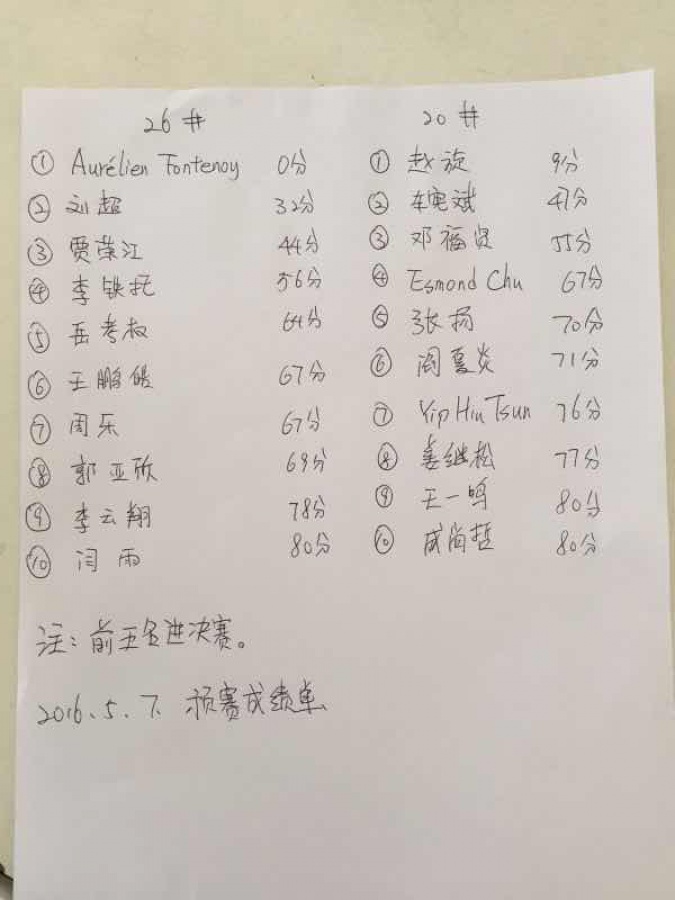 26# 20#
① Aurélien Fontenoy 0分 ① 赵旋 9分
② 刘超 32分 ② 车宪斌 47分
③ 贾荣江 44分 ③ 邓福贤 55分
④ 李铁托 56分 ④ Esmond Chu 67分
⑤ 岳考权 64分 ⑤ 张扬 70分
⑥ 王鹏皓 67分 ⑥ 阎夏炎 71分
⑦ 周乐 67分 ⑦ Yip Hin Tsun 76分
⑧ 郭亚欣 69分 ⑧ 姜继松 77分
⑨ 李云翔 78分 ⑨ 王一鸣 80分
⑩ 闫雨 80分 ⑩ 尚哲 80分
注：前五名进决赛。
2016.5.7. 预赛成绩单